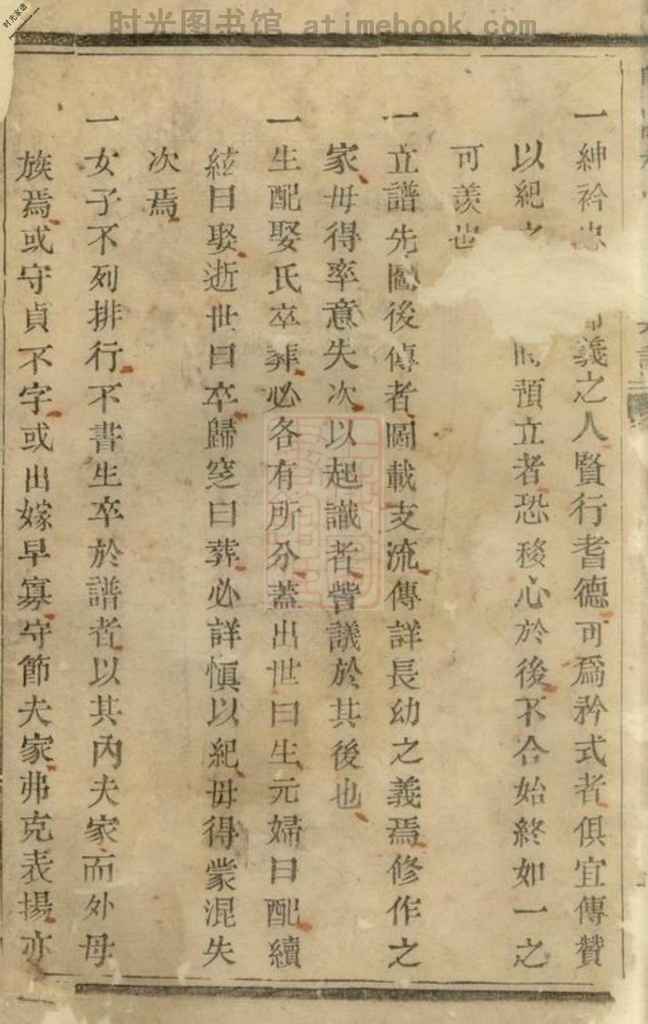 时光图书馆 atimebook.com
时光家谱
一紳衿忠節義之人賢行耆德可爲矜式者俱宜傳贊
以紀之預立者恐移心於後不合始終如一之
可羨也
一立譜先圖後傳者圖載支流傳詳長幼之義焉修作之
家毋得率意失次以起識者訾議於其後也
一生配娶氏卒葬必各有所分蓋出世曰生元婦曰配續
絃曰娶逝世曰卒歸窆曰葬必詳愼以紀毋得蒙混失
次焉
一女子不列排行不書生卒於譜者以其內夫家而外母
族焉或守貞不字或出嫁早寡守節夫家弗克表揚亦